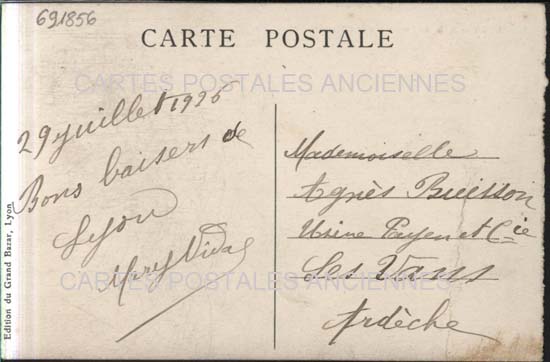 691856
CARTE POSTALE
CARTES POSTALES ANCIENNES
29 juillet 1926
Bons baisers de
Lyon
Mary Vidal
Mademoiselle
Agnès Buisson
Usine Payen et Cie
Les Vans
Ardèche
CARTES POSTALES ANCIENNES
Edition du Grand Bazar, Lyon